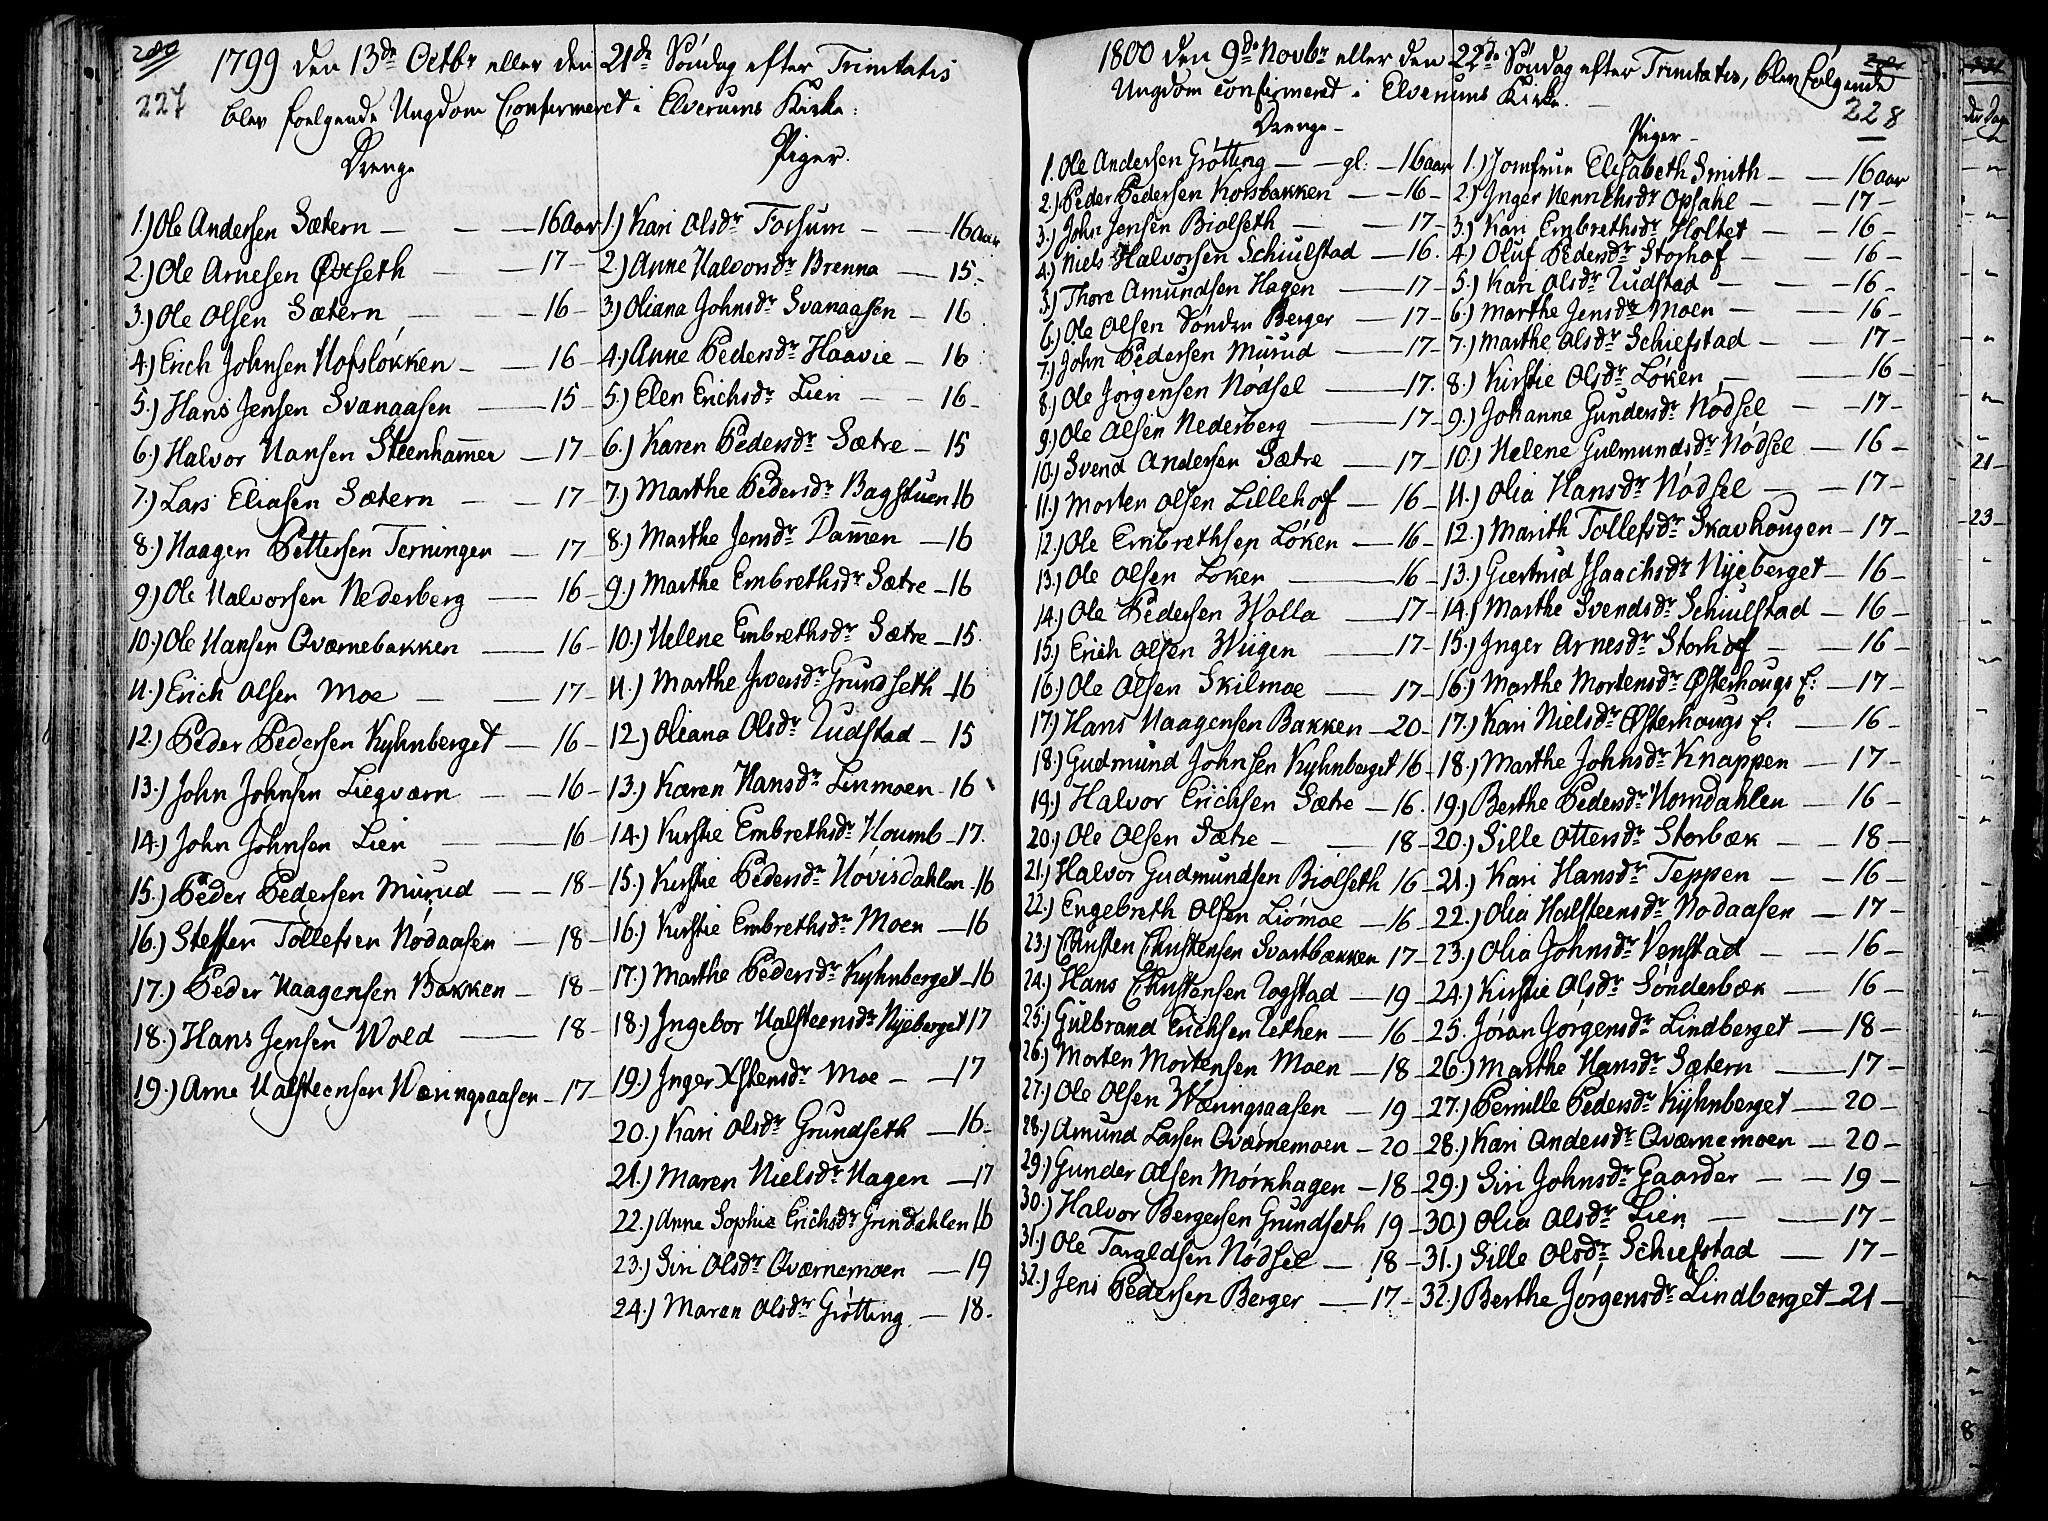 227
1799 den 13de Octbr eller den 21de Søndag efter Trinitatis
blev følgende Ungdom Confirmeret i Elverums Kirke:
Drenge
1.) Ole Andersen Sætern — 16 Aar
2.) Ole Arnesen Øxseth — 17 -
3.) Ole Olsen Sætern — 16 -
4.) Erich Johnsen Hofsløkken — 16 -
5.) Hans Jensen Svanaasen — 15 -
6.) Halvor Hansen Steenham̄er — 17 -
7.) Lars Eliasen Sætern — 17 -
8.) Haagen Pettersen Terningen — 17 -
9.) Ole Halvorsen Nederberg — 16 -
10.) Ole Hansen Qværnebakken — 16 -
11.) Erich Olsen Moe — 17 -
12.) Peder Pedersen Kyhnberget — 16 -
13.) John Johnsen Liegværn — 16 -
14.) John Johnsen Lien — 16 -
15.) Peder Pedersen Murud — 18 -
16.) Steffen Tollefsen Nødaasen — 18 -
17.) Peder Haagensen Bakken — 18 -
18.) Hans Jensen Wold — 18 -
19.) Arne Halsteensen Wæringsaasen — 17 -
Piger.
1.) Kari Olsdr Forsum — 16 Aar
2.) Anne Halvorsdr Brenna — 15 -
3.) Oliana Johnsdr Svanaasen — 16
4.) Anne Pedersdr Haavie — 16
5.) Elen Erichsdr Lien — 16 -
6.) Karen Pedersdr Sætre — 15
7.) Marthe Pedersdr Bagstuen 16
8.) Marthe Jensdr Dam̄en — 16
9.) Marthe Embrethsdr Sætre — 16
10.) Helene Embrethsdr Sætre — 15
11.) Marthe Iversdr Grundseth — 16
12.) Oliana Olsdr Rudstad — 15
13.) Karen Hansdr Linmoen - 16
14.) Kirstie Embrethsdr Houmb - 17.
15.) Kirstie Pedersdr Høvisdahlen - 16
16.) Kirstie Embrethsdr Moen — 16
17.) Marthe Pedersdr Kyhnberget - 16
18.) Ingebor Halsteensdr Nyeberget 17
19.) Inger Xstensdr Moe — 17
20.) Kari Olsdr Grundseth — 16 -
21.) Maren Nielsdr Hagen — 17
22.) Anne Sophie Erichsdr Grindahlen 16
23.) Siri Olsdr Qværnemoen — 19
24.) Maren Olsdr Grøtting — 18 -
228
1800 den 9de Novbr eller den 22de Søndag efter Trinitatis, blev følgende
Ungdom confirmeret i Elverums Kirke.
Drenge -
1. Ole Andersen Grøtting — gl. — 16 aar
2.) Peder Pedersen Korsbakken — 16 -
3.) John Jensen Biolseth — 17 -
4.) Niels Halvorsen Schiulstad — 16.
5.) Thore Amundsen Hagen — 17 -
6.) Ole Olsen Søndre Berger — 17 -
7.) John Pedersen Murud — 17 -
8.) Ole Jørgensen Nødsel — 17.
9.) Ole Olsen Nederberg — 17 -
10.) Svend Andersen Sætre — 17 -
11.) Morten Olsen Lillehof — 16 -
12.) Ole Embrethsen Løken — 16 -
13.) Ole Olsen Løken — 16 -
14.) Ole Pedersen Wolla — 17 -
15.) Erich Olsen Wiigen — 17 -
16.) Ole Olsen Skilmoe — 17 -
17.) Hans Haagensen Bakken — 20 -
18.) Gudmund Johnsen Kyhnberget 16 -
19.) Halvor Erichsen Sætre — 16.
20.) Ole Olsen Sætre — 18 -
21.) Halvor Gudmundsen Biolseth 16 -
22.) Engebreth Olsen Liømoe — 16 -
23.) Christen Christensen Svartbækken 17 -
24.) Hans Christensen Rogstad — 19 -
25.) Gulbrand Erichsen Rethen — 16 -
26.) Morten Mortensen Moen — 18 -
27.) Ole Olsen Wæringsaasen — 19 -
28.) Amund Larsen Qværnemoen — 20 -
29.) Gunder Olsen Mørkhagen — 18 -
30.) Halvor Bergersen Grundseth 19 -
31.) Ole Taraldsen Nødsel — 18 -
32.) Jens Pedersen Berger — 17 -
Piger -
1.) Jomfrue Elisabeth Smith — 16 aar
2.) Inger Henrichsdr Opsahl — 17 -
3.) Kari Embrethsdr Holtet — 16 -
4.) Oluf Pedersdr Storhof — 16 -
5.) Kari Olsdr Rudstad — 16 -
6.) Marthe Jensdr Moen — 16 -
7.) Marthe Olsdr Schiefstad — 17 -
8.) Kirstie Olsdr Løken — 16 -
9.) Johanne Gundersdr Nødsel — 17 -
10.) Helene Gulmundsdr Nødsel — 16 -
11.) Olia Hansdr Nødsel — 17 -
12.) Marith Tollefsdr Skavhougen — 17 -
13.) Giertrud Isaachsdr Nyeberget — 16 -
14.) Marthe Svendsdr Schiulstad — 16 -
15.) Inger Arnesdr Storhof — 16 -
16.) Marthe Mortensdr Østerhougs E: — 17 -
17.) Kari Nielsdr Østerhougs E. — 16 -
18.) Marthe Johnsdr Knappen — 17 -
19.) Berthe Pedersdr Horndahlen — 16 -
20.) Sille Ottersdr Storbæk — 18 -
21.) Kari Hansdr Teppen — 16 -
22.) Olia Halsteensdr Nodaasen — 17 -
23.) Olia Johnsdr Venstad — 16 -
24.) Kirstie Olsdr Sønderbæk — 16 -
25. Jøran Jørgensdr Lindberget — 18 -
26.) Marthe Hansdr Sætern — 17 -
27.) Pernille Pedersdr Kyhnberget — 20 -
28.) Kari Andersdr Qværnemoen — 20 -
29.) Siri Johnsdr Gaarder — 19 -
30.) Olia Olsdr Lien — 17 -
31.) Sille Olsdr Schiefstad — 17 -
32.) Berthe Jørgensdr Lindberget — 21 -
21
23
8